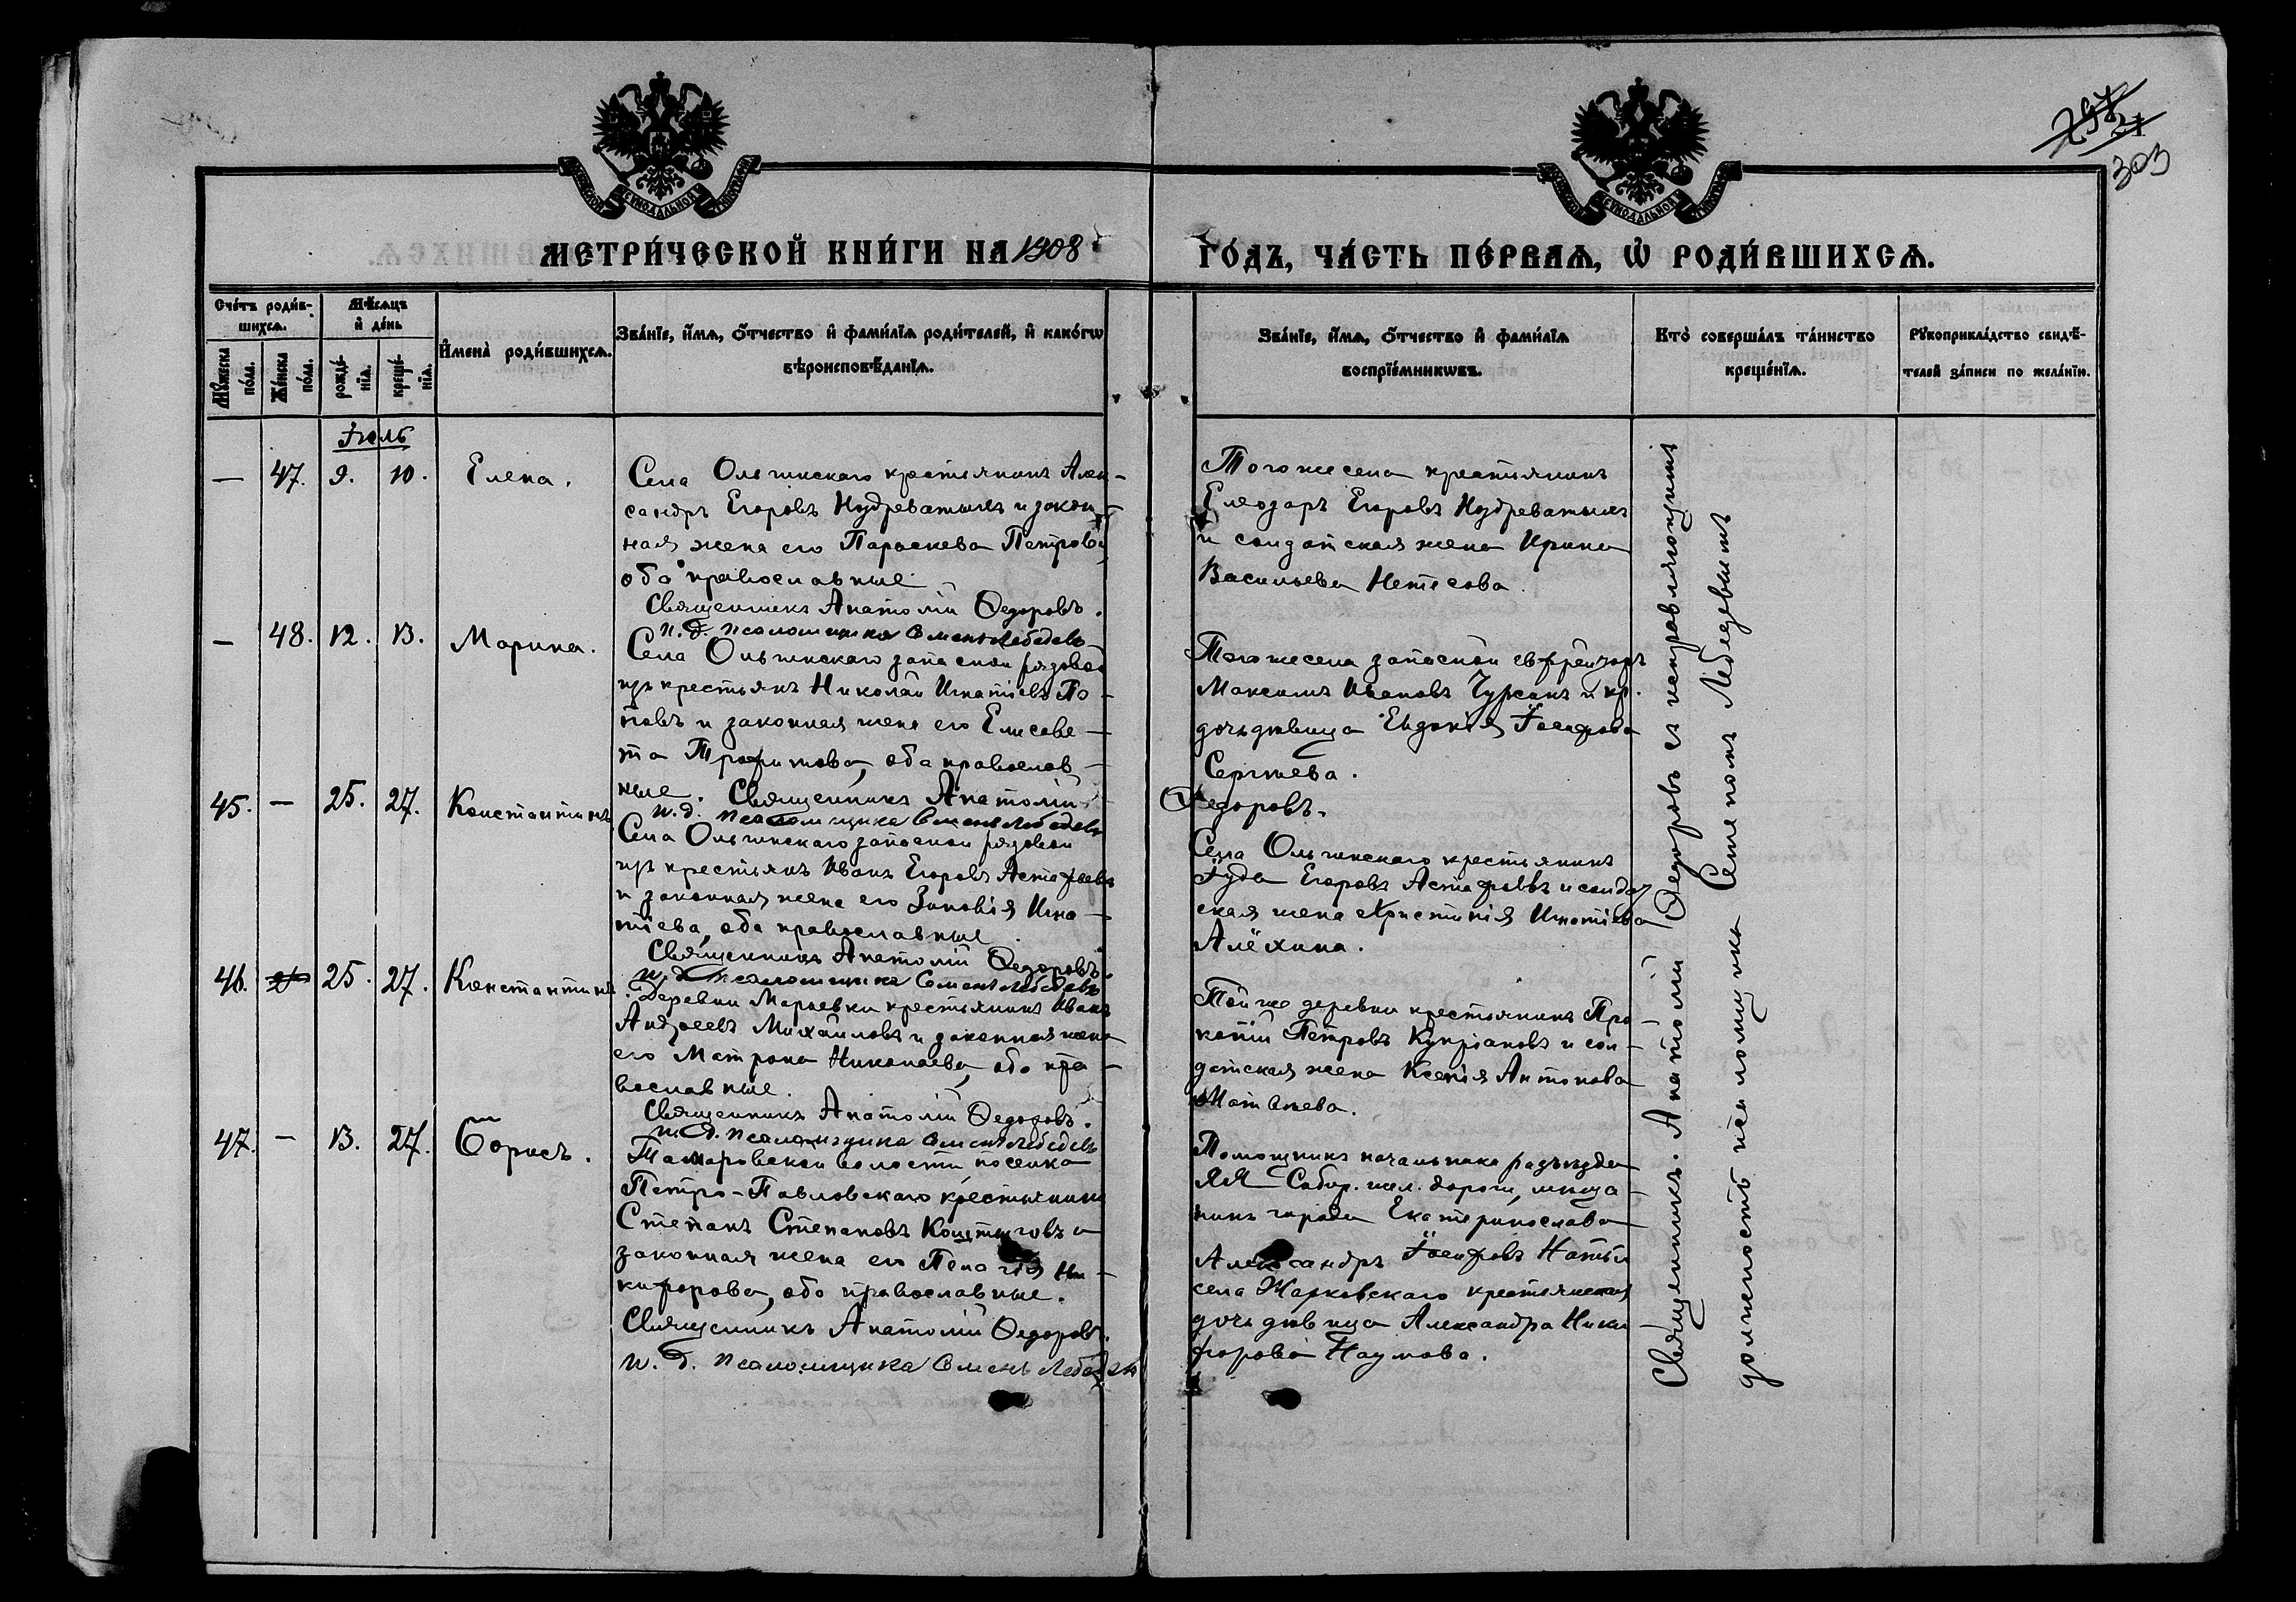 297
21
303
СѴНОДАЛЬНОЙ
СѴНОДАЛЬНОЙ
МЕТРИ́ЧЕСКОЙ КНИ́ГИ НА 1908
ГО́ДЪ, ЧА́СТЬ ПЕ́РВАѦ, Ѡ҆ РОДИ́ВШИХСѦ.
Сче́тъ роди́в-
шихсѧ.
Мꙋ́жеска по́ла.
Же́нска по́ла.
Мѣ́сѧцъ
и҆ де́нь
рожде́-
нїѧ.
креще́-
нїѧ.
И҆мена̀ роди́вшихсѧ.
Зва́нїе, и҆́мѧ, ѻ҆́тчество и҆ фами́лїѧ роди́телей, и҆ како́гѡ
вѣроисповѣ́данїѧ.
Зва́нїе, и҆́мѧ, ѻ҆́тчество и҆ фами́лїѧ
воспрїе́мникѡвъ.
Кто̀ соверша́лъ та́инство
креще́нїѧ.
Рꙋкоприкла́дство свидѣ́-
телей за́писи по жела́нїю.
Іюль
— 47. 9. 10. Елена.
Села Ольгинскаго крестьянинъ Алек-
сандръ Егоровъ Кудреватыхъ и закон-
ная жена его Параскева Петрова,
оба православные
Священникъ Анатолій Ѳедоровъ.
и. д. псаломщика Семенъ Лебедевъ
Того же села крестьянинъ
Елеодаръ Егоровъ Кудреватыхъ
и солдатская жена Ирина
Васильева Нетесова.
— 48. 12. 13. Марина.
Села Ольгинскаго запасной рядовой
изъ крестьянъ Николай Игнатіевъ По-
повъ и законная жена его Елисаве-
та Трофимова, оба православ-
ные. Священникъ Анатолій
Ѳедоровъ.
и. д. псаломщика Семенъ Лебедевъ
Того же села запасной ефрейторъ
Максимъ Ивановъ Чурсанъ и кр.
дочь дѣвица Евдокія Іосифова
Сергѣева.
45. — 25. 27. Константинъ
Села Ольгинскаго запасной рядовой
изъ крестьянъ Иванъ Егоровъ Астафьевъ
и законная жена его Зиновія Игна-
тіева, оба православные.
Священникъ Анатолій Ѳедоровъ.
и. д. псаломщика Семенъ Лебедевъ
Села Ольгинскаго крестьянинъ
Іуда Егоровъ Астафьевъ и солдат
ская жена Христинія Игнатіева
Алёхина.
46. 25. 27. Константинъ.
Деревни Марьевки крестьянинъ Иванъ
Андреевъ Михайловъ и законная жена
его Матрона Николаева, оба пра-
вославные.
Священникъ Анатолій Ѳедоровъ.
и. д. псаломщика Семенъ Лебедевъ
Той же деревни крестьянинъ Про-
копій Петровъ Купріановъ и сол-
датская жена Ксенія Антонова
Матвѣева.
47. — 13. 27. Борисъ.
волости поселка
Петро-Павловскаго крестьянинъ
Степанъ Степановъ и
законная жена его Пелагія Ни-
кифорова, оба православные.
Священникъ Анатолій Ѳедоровъ.
и. д. псаломщика Семенъ Лебедевъ
Помощникъ начальника разъѣзда
Сибир. жел. дороги, мѣща-
нинъ города Екатеринослава
Александръ Іосифовъ
села Жарковскаго крестьянская
дочь дѣвица Александра Ники-
форова Наумова.
Священникъ Анатолій Ѳедоровъ съ исправляющимъ
должность псаломщика Семеномъ Лебедевымъ